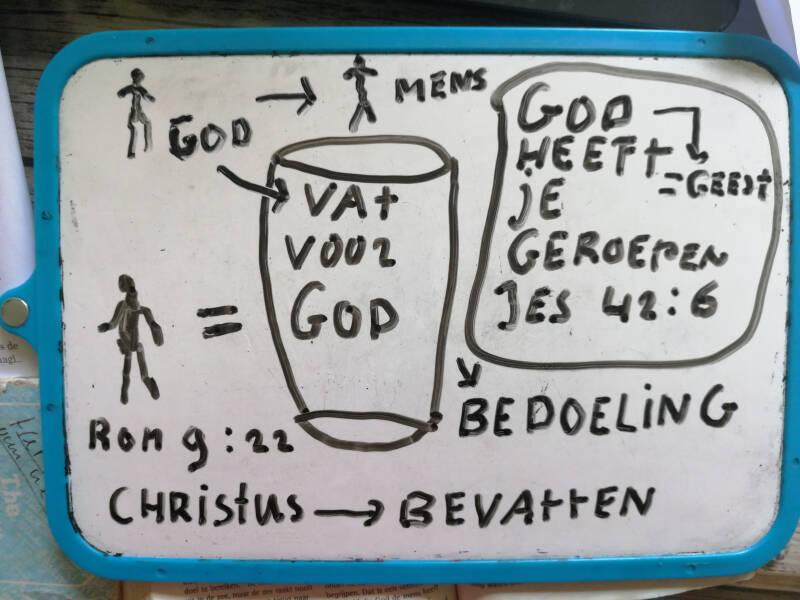 GOD → MENS
VAT
VOOR
GOD
=
Rom 9:22
GOD
= GEEST
HEEFT
JE
GEROEPEN
JES 42:6
BEDOELING
CHRISTUS → BEVATTEN